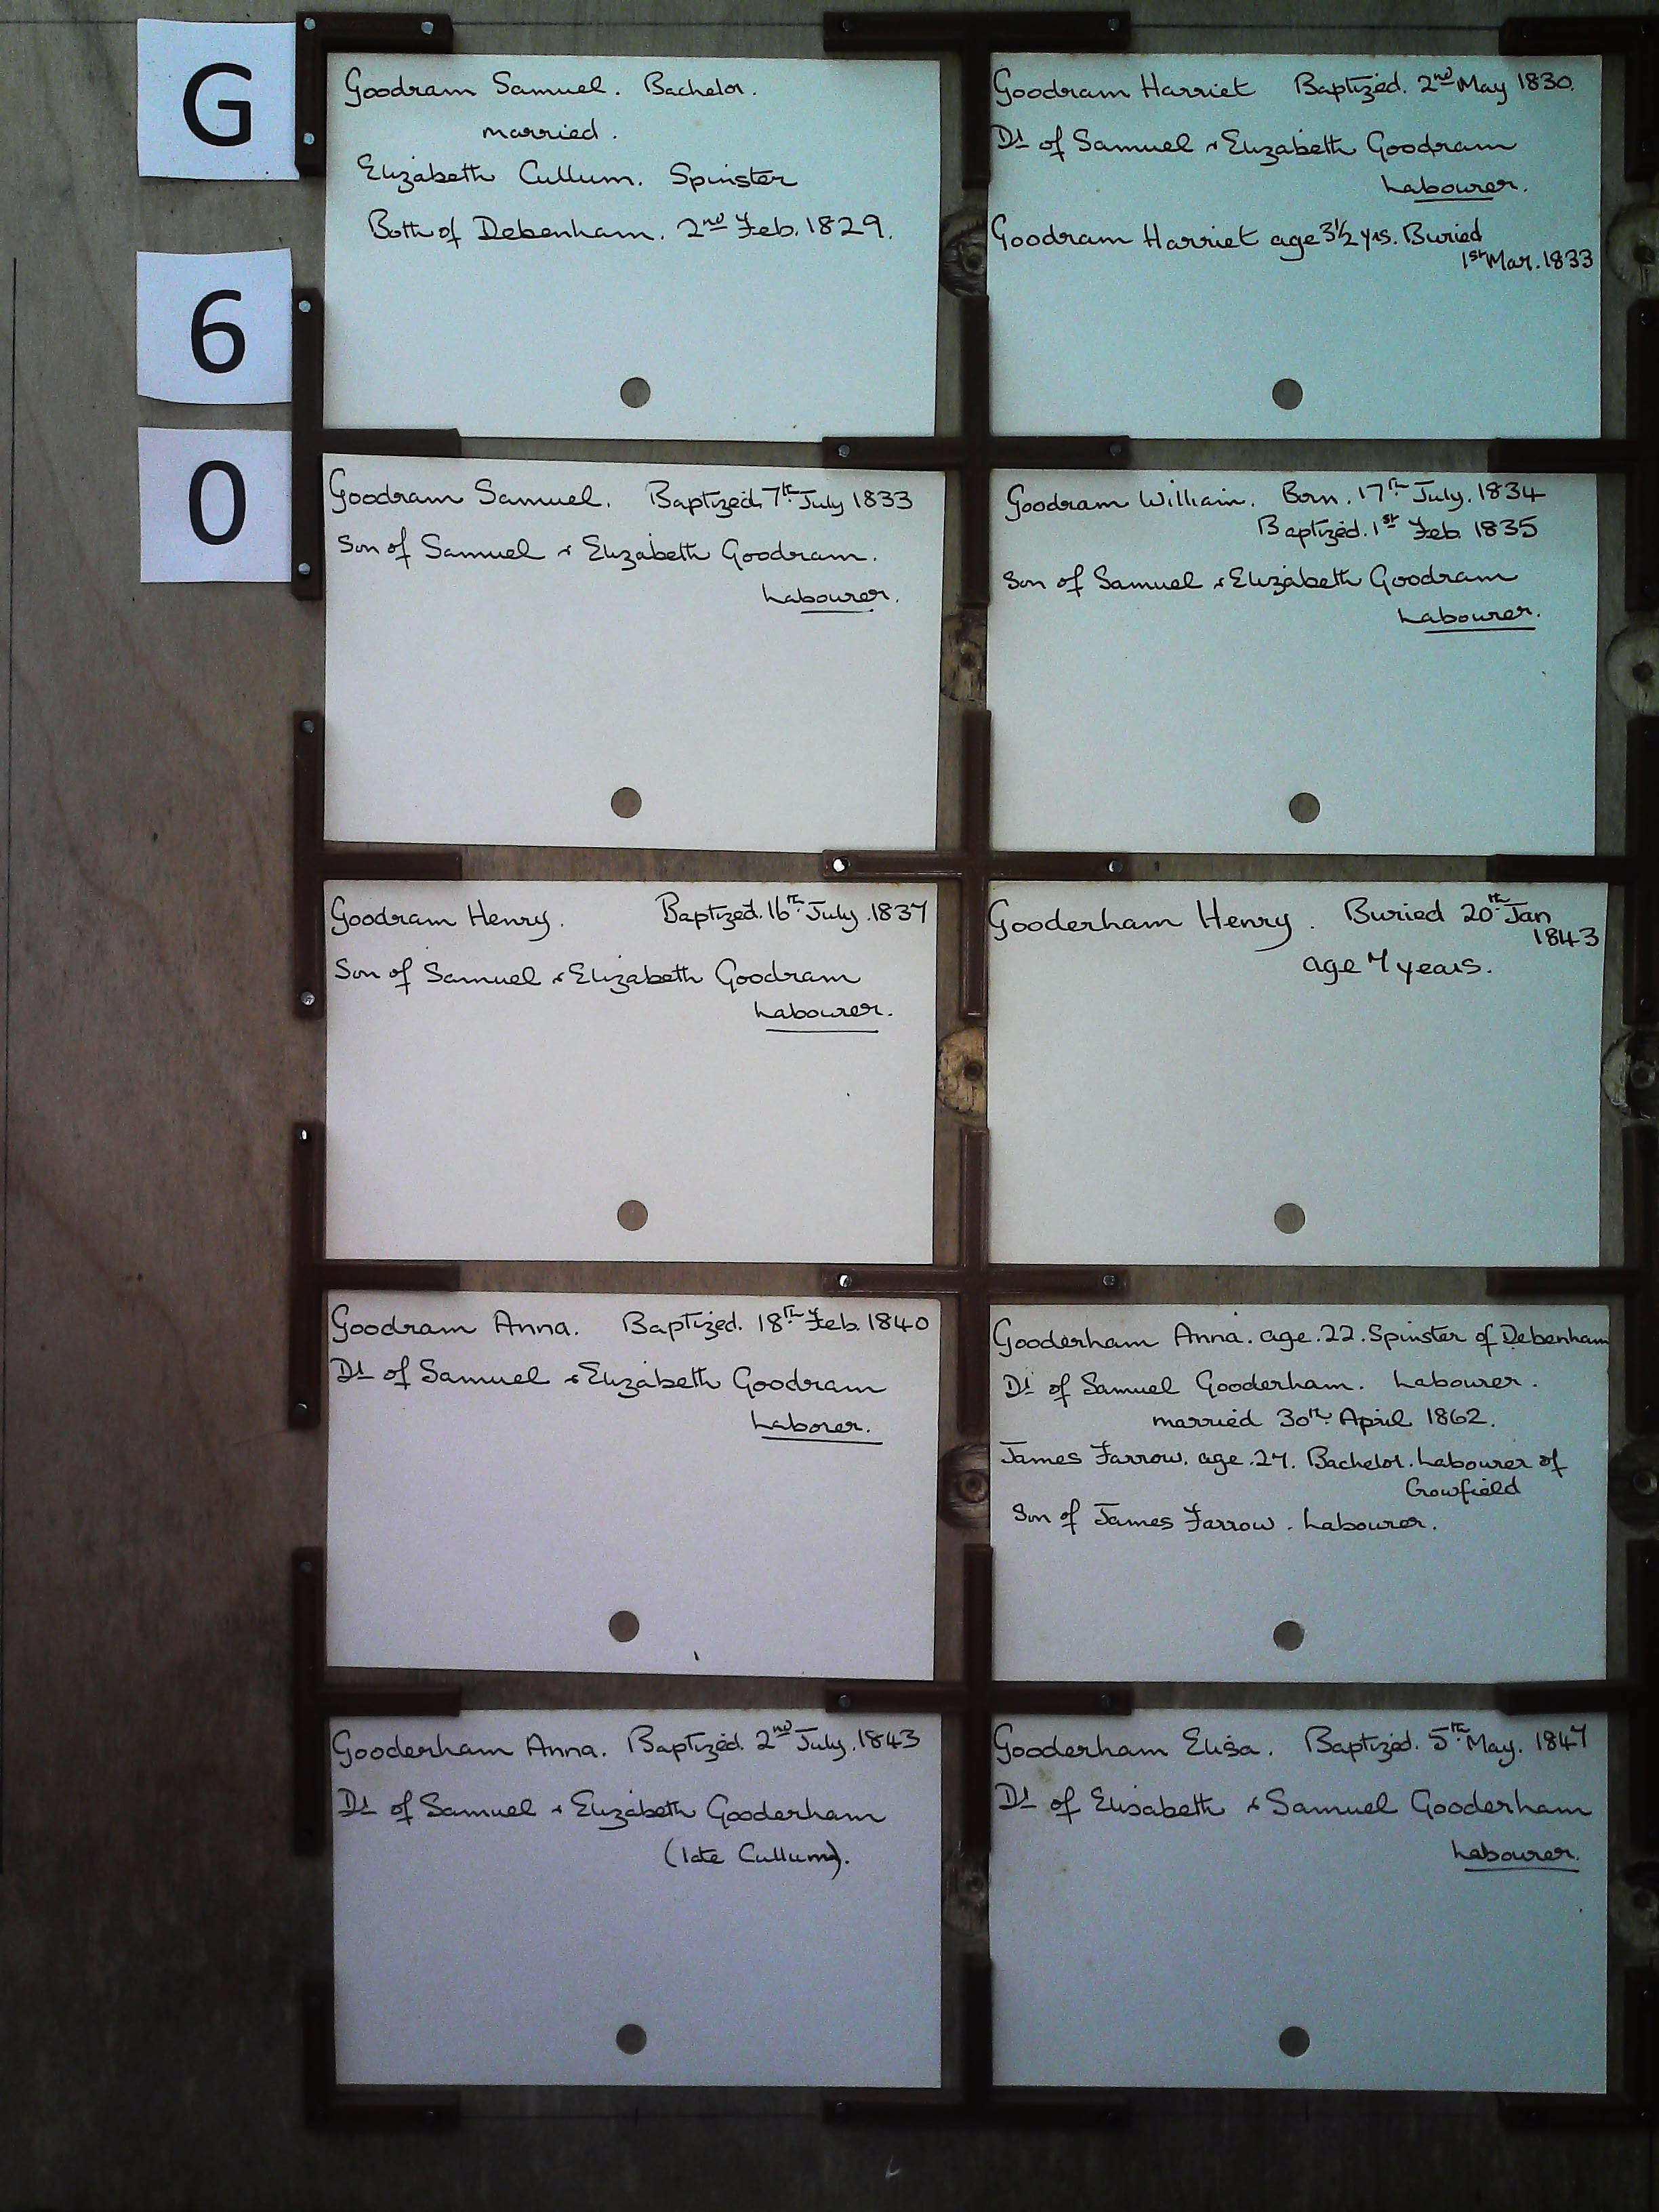 G
6
0
Goodram Samuel. Bachelor.
married.
Elizabeth Cullum. Spinster
Both of Debenham. 2nd Feb. 1829.
Goodram Harriet Baptized. 2nd May 1830.
Dt of Samuel & Elizabeth Goodram
Labourer.
Goodram Harriet age 3½ yrs. Buried
1st Mar. 1833
Goodram Samuel. Baptized 7th July 1833
Son of Samuel & Elizabeth Goodram.
Labourer.
Goodram William. Born. 17th July. 1834
Baptized. 1st Feb. 1835
Son of Samuel & Elizabeth Goodram
Labourer.
Goodram Henry. Baptized. 16th July. 1837
Son of Samuel & Elizabeth Goodram
Labourer.
Gooderham Henry. Buried 20th Jan
1843
age 7 years.
Goodram Anna. Baptized. 18th Feb. 1840
Dt of Samuel & Elizabeth Goodram
Laborer.
Gooderham Anna. age. 22. Spinster of Debenham
Dt of Samuel Gooderham. Labourer.
married 30th April 1862.
James Farrow. age. 27. Bachelor. Labourer of
Crowfield
Son of James Farrow. Labourer.
Gooderham Anna. Baptized. 2nd July. 1843
Dt of Samuel & Elizabeth Gooderham
(late Cullum).
Gooderham Elisa. Baptized. 5th May. 1847
Dt of Elisabeth & Samuel Gooderham
Labourer.